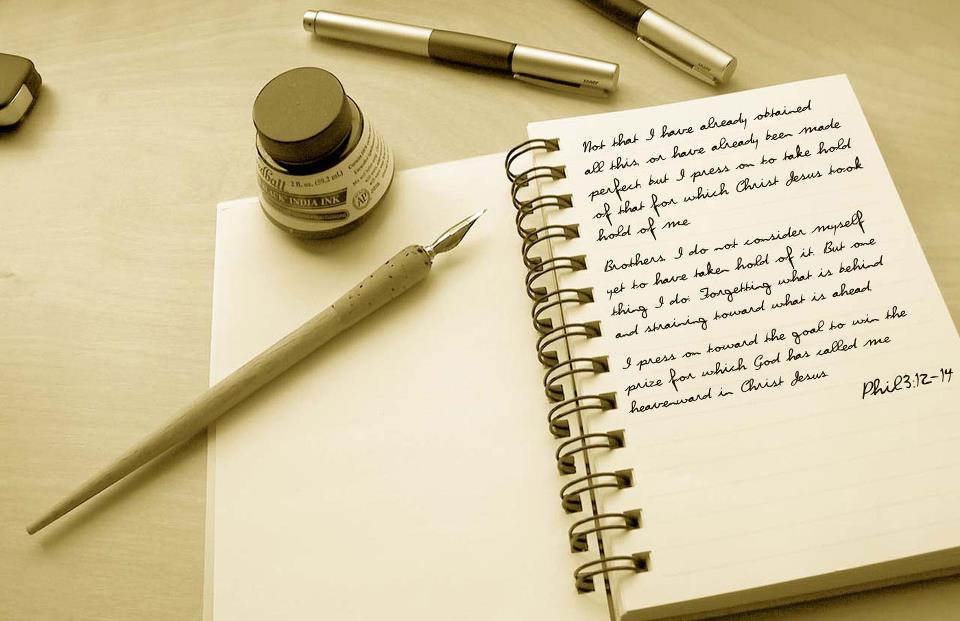 2 fl. oz. (59.2 mL)
INDIA INK
AP
Not that I have already obtained
all this, or have already been made
perfect but I press on to take hold
of that for which Christ Jesus took
hold of me
Brothers, I do not consider myself
yet to have taken hold of it. But one
thing I do: Forgetting what is behind
and straining toward what is ahead
I press on toward the goal to win the
prize for which God has called me
heavenward in Christ Jesus
Phil 3:12-14